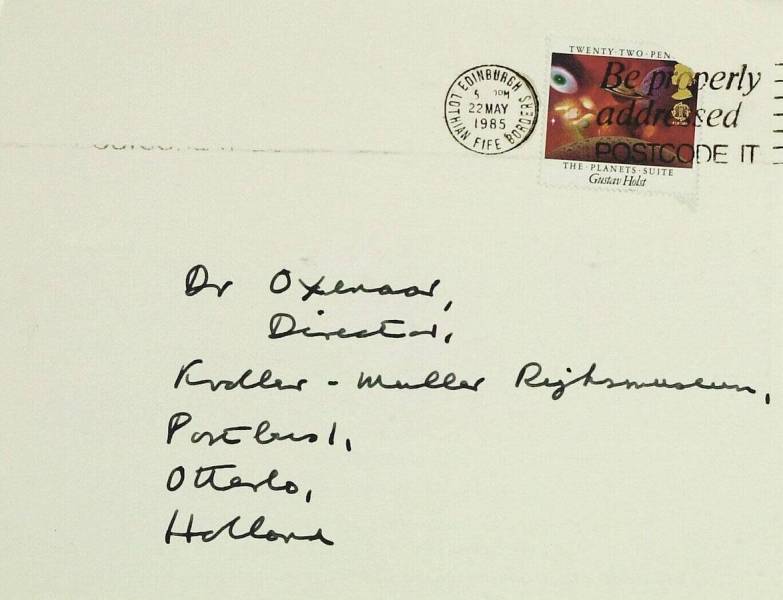 TWENTY·TWO·PEN
Be properly
addressed
POSTCODE IT
EDINBURGH
LOTHIAN FIFE BORDERS
5 PM
22 MAY
1985
THE·PLANETS·SUITE
Gustav Holst
Dr Oxenaar,
Director,
Kroller - Muller Rijksmuseum,
Postbus 1,
Otterlo,
Holland